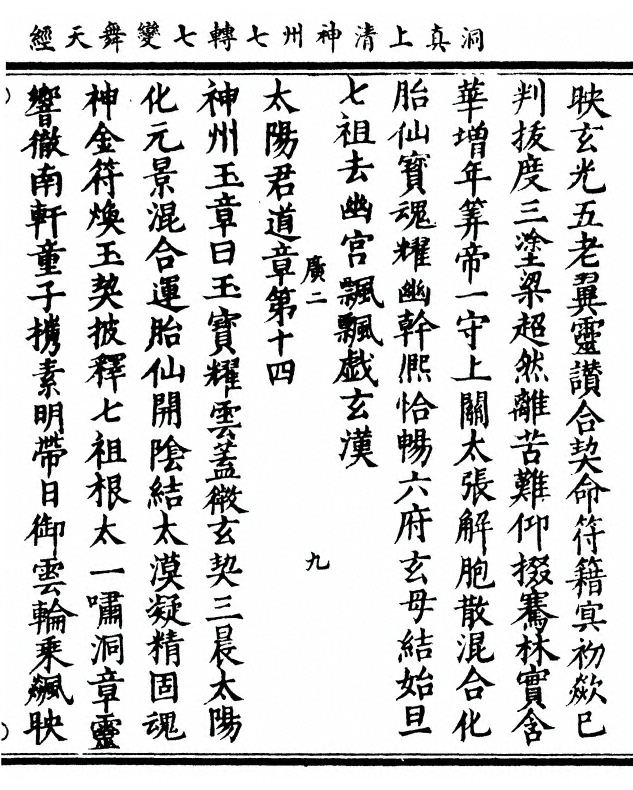 洞真上清神州七轉七變舞天經
映玄光五老翼靈讚合契命符籍寘初歘已
判拔度三塗梁超然離苦難仰掇騫林實含
華增年筭帝一守上關太張解胞散混合化
胎仙寶魂耀幽幹熈怡暢六府玄母結始旦
七祖去幽宮飄飄戲玄漢
廣二
九
太陽君道章第十四
神州玉章曰玉寶耀雲蓋微玄契三晨太陽
化元景混合運胎仙開陰結太漠凝精固魂
神金符煥玉契披釋七祖根太一嘯洞章靈
響徹南軒童子攜素明帶日御雲輪乘飆映